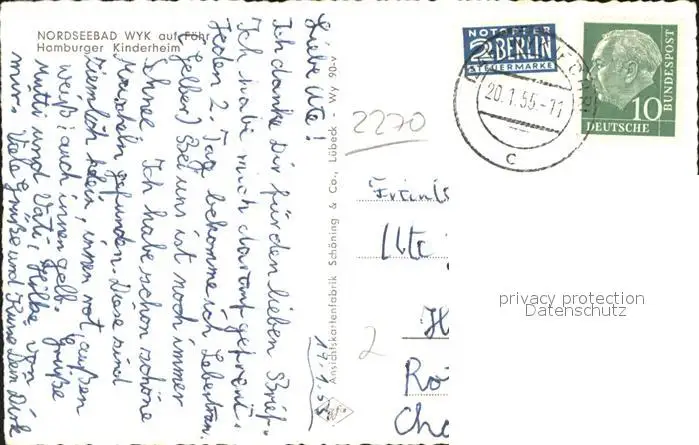 NORDSEEBAD WYK auf Föhr
Hamburger Kinderheim
Liebe Ute!
Ich danke Dir für den lieben Brief.
Ich habe mich darauf gefreut.
Jeden 2. Tag bekomme ich Lebertran.
(gelber) Bei uns ist noch immer
Schnee. Ich habe schon schöne
Muscheln gefunden. Diese sind
ziemlich klein, innen rot, außen
weiß; auch innen gelb. Grüße
Mutti und Vati, Hilke von
mir. Viele Grüße und Deine
Ansichtskartenfabrik Schöning & Co., Lübeck Wy 98-v
2270
NOTOPFER
2 BERLIN
STEUERMARKE
20.1.55.-11
c
10
DEUTSCHE
BUNDESPOST
Ute
H
2
Rö
privacy protection
Datenschutz